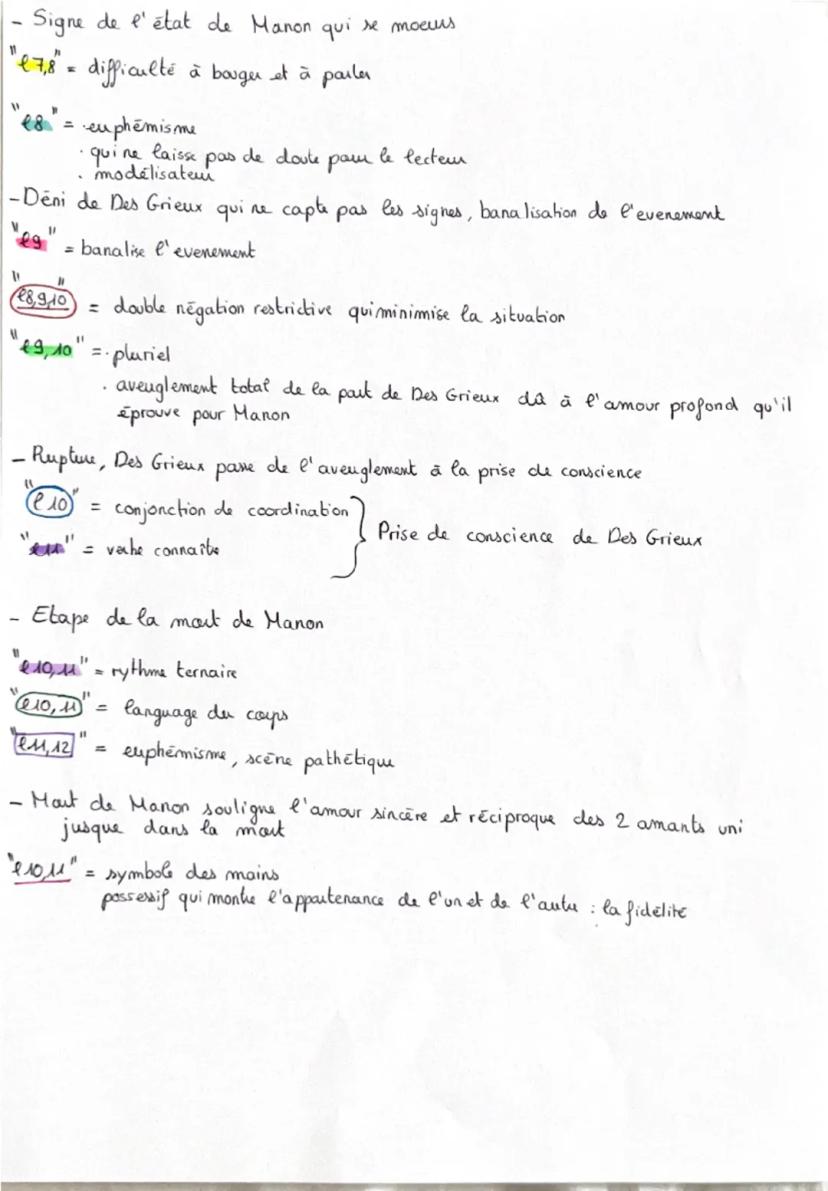 - Signe de l'état de Manon qui se moeurs
"l7,8" = difficulté à bouger et à parler
"l8" = · euphémisme
· qui ne laisse pas de doute pour le lecteur
· modélisateur
- Déni de Des Grieux qui ne capte pas les signes, banalisation de l'evenement
"l9" = banalise l'evenement
"l8,9,10" = double négation restrictive qui minimise la situation
"l9,10" = · pluriel
· aveuglement total de la part de Des Grieux dû à l'amour profond qu'il
éprouve pour Manon
- Rupture, Des Grieux passe de l'aveuglement à la prise de conscience
"l10" = conjonction de coordination
"l11" = verbe connaître
Prise de conscience de Des Grieux
- Etape de la mort de Manon
"l10,11" = rythme ternaire
"l10,11" = language du corps
"l11,12" = euphémisme, scène pathétique
- Mort de Manon souligne l'amour sincère et réciproque des 2 amants uni
jusque dans la mort
"l10,11" = symbole des mains
possessif qui montre l'appartenance de l'un et de l'autre : la fidélité